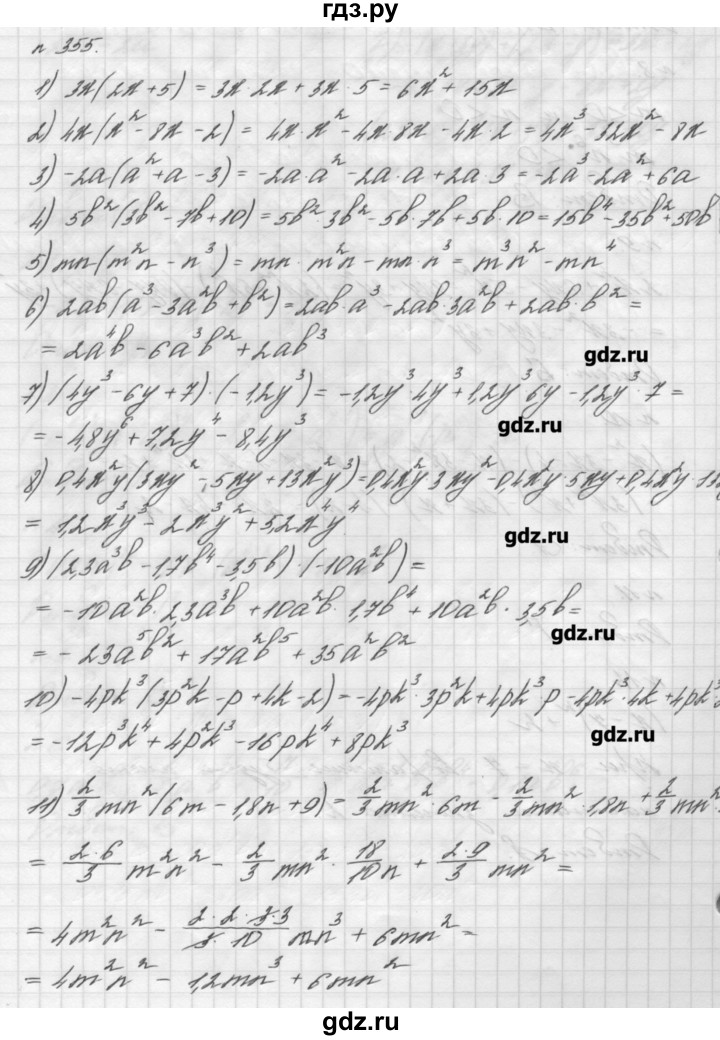 гдз.ру
n 355.
1) 3x(2x+5) = 3x·2x+3x·5 = 6x²+15x
2) 4x(x²-8x-2) = 4x·x²-4x·8x-4x·2 = 4x³-32x²-8x
3) -2a(a²+a-3) = -2a·a²-2a·a+2a·3 = -2a³-2a²+6a
4) 5b²(3b²-7b+10) = 5b²·3b²-5b·7b+5b·10 = 15b⁴-35b²+50b
5) mn(m²n-n³) = mn·m²n-mn·n³ = m³n²-mn⁴
6) 2ab(a³-3a²b+b²) = 2ab·a³-2ab·3a²b+2ab·b² =
= 2a⁴b-6a³b²+2ab³
gdz.ru
7) (4y³-6y+7)·(-1,2y³) = -1,2y³4y³+1,2y³6y-1,2y³·7 =
gdz.ru
= -4,8y⁶+7,2y⁴-8,4y³
8) 0,4x²y(3xy²-5xy+13x²y³) = 0,4x²y3xy²-0,4x²y·5xy+0,4x²y·13
= 1,2x³y³-2x³y²+5,2x⁴y⁴
gdz.ru
9) (2,3a³b-1,7b⁴-3,5b)·(-10a²b) =
= -10a²b·2,3a³b+10a²b·1,7b⁴+10a²b·3,5b =
gdz.ru
= -23a⁵b²+17a²b⁵+35a²b²
10) -4pk³(3p²k-p+4k-2) = -4pk³·3p²k+4pk³p-4pk³·4k+4pk³·
= -12p³k⁴+4p²k³-16pk⁴+8pk³
gdz.ru
11) 2/3 mn²(6m-1,8n+9) = 2/3 mn²·6m - 2/3 mn²·1,8n + 2/3 mn²
= 2·6/3 m²n² - 2/3 mn²·18/10 n + 2·9/3 mn² =
= 4m²n² - 2·2·3·3/3·10 mn³ + 6mn² =
= 4m²n² - 1,2mn³ + 6mn²
gdz.ru